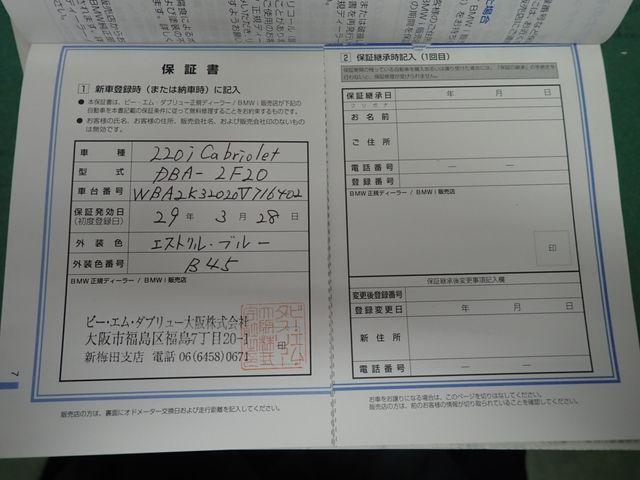 保証書
1 新車登録時(または納車時)に記入
●本保証書は、ビー・エム・ダブリュー正規ディーラー/BMW i 販売店が下記の
自動車を本書記載の保証条件に従って無料修理することをお約束するものです。
●お客様の氏名、お客様の住所、販売会社名、および販売会社印のないもの
は無効です。
車種 220i Cabriolet
型式 DBA-2F20
車台番号 WBA2K32020V716402
保証発効日 29年 3月 28日
(初度登録日)
外装色 エストリル・ブルー
外装色番号 B45
BMW正規ディーラー/BMW i 販売店
ビー・エム・ダブリュー大阪株式会社
大阪市福島区福島7丁目20-1
新梅田支店 電話 06(6458)0671
印
販売店の方は、裏面にオドメーター交換日および走行距離を記入してください。
7
2 保証継承時記入(1回目)
保証継承日 年 月 日
フリガナ
お名前
ご住所
電話番号 — —
登録番号
BMW正規ディーラー/BMW i 販売店
印
保証継承後変更事項記入欄
変更後登録番号
登録変更日 年 月 日
新住所
電話番号 — —
お車をお譲りになる場合は、このページを切りはなしてください。
販売店の方は、前のお客様の情報が切り取られていることを確認してください。